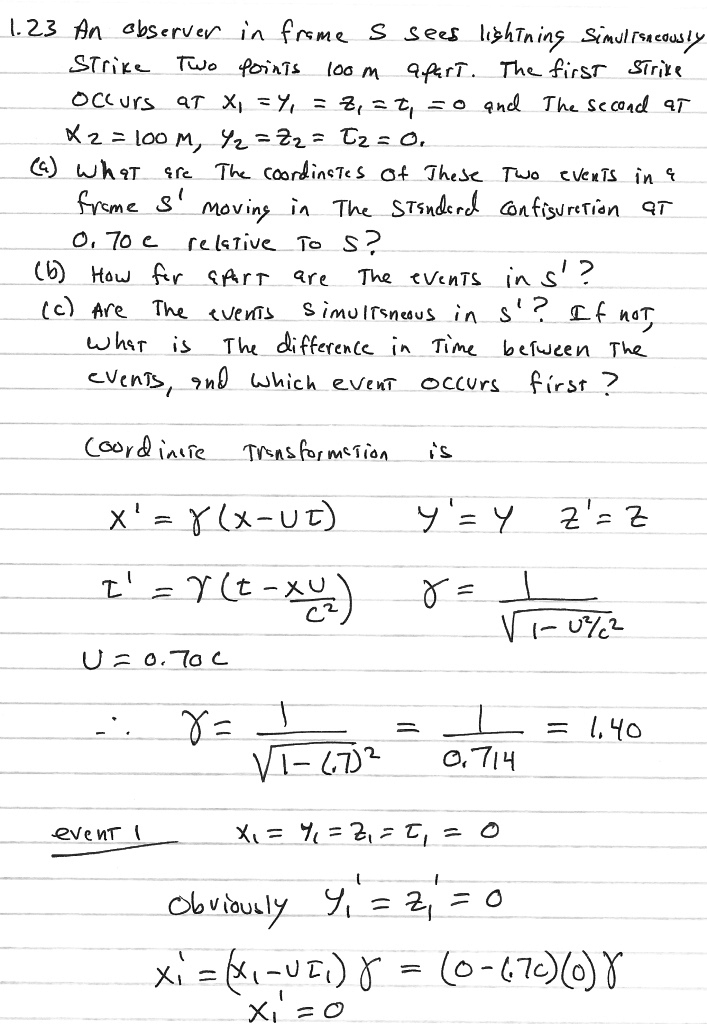 1.23 An observer in frame S sees lightning simultaneously
strike two points 100 m apart. The first strike
occurs at x₁ = y₁ = z₁ = t₁ = 0 and the second at
x₂ = 100 m, y₂ = z₂ = t₂ = 0.
(a) What are the coordinates of these two events in a
frame S' moving in the standard configuration at
0.70 c relative to S?
(b) How far apart are the events in S'?
(c) Are the events simultaneous in S'? If not,
what is the difference in time between the
events, and which event occurs first?
Coordinate transformation is
x' = γ(x-Ut) y' = y z' = z
t' = γ(t - xU/c²) γ = 1/√(1-U²/c²)
U = 0.70 c
∴ γ = 1/√(1-(.7)²) = 1/0.714 = 1.40
event 1 x₁ = y₁ = z₁ = t₁ = 0
Obviously y₁' = z₁' = 0
x₁' = (x₁-Ut₁)γ = (0-(.7c)(0)γ
x₁' = 0